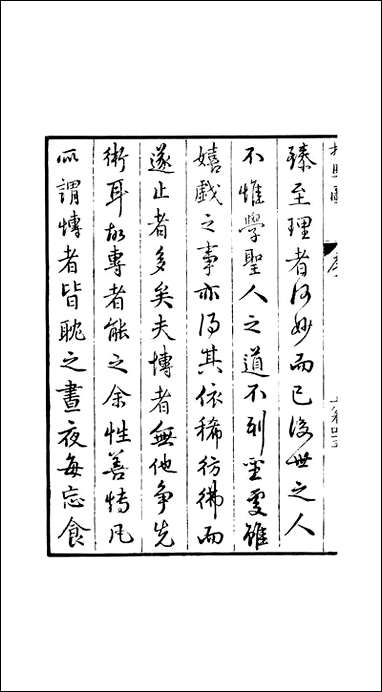 臻至理者何妙而已後世之人
不惟學聖人之道不到聖處雖
嬉戲之事亦得其依稀彷彿而
遂止者多矣夫愽者無他爭先
術耳故專者能之余性善愽凡
所謂愽者皆耽之晝夜每忘食